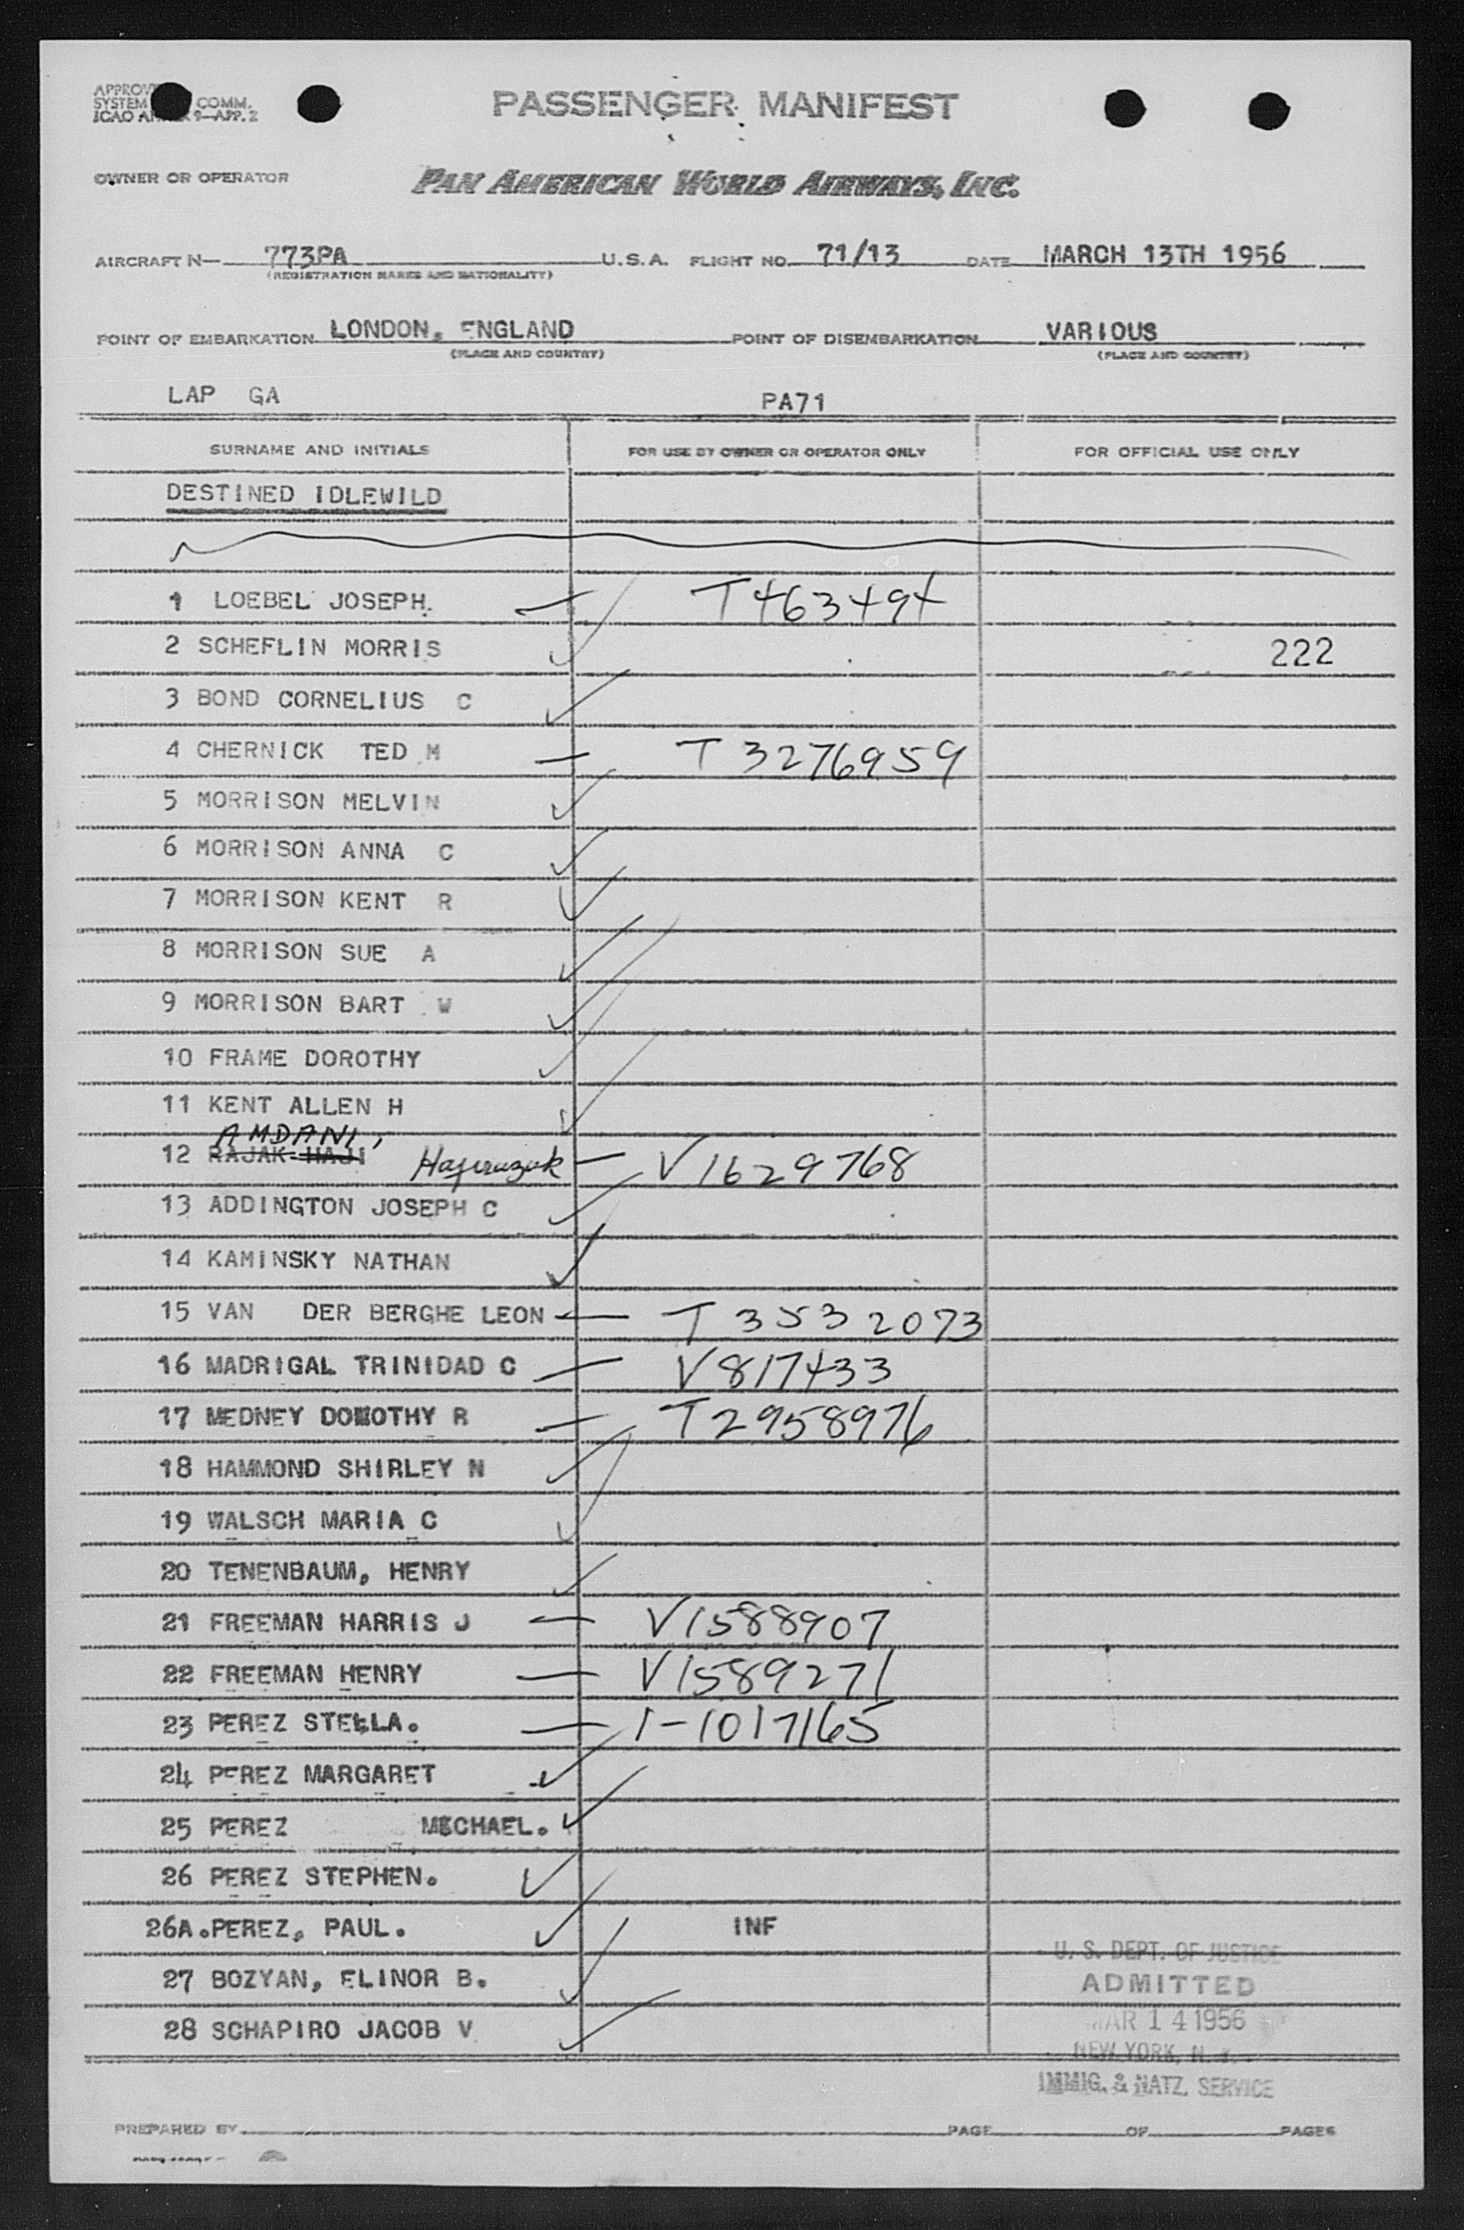 PASSENGER MANIFEST
OWNER OR OPERATOR PAN AMERICAN WORLD AIRWAYS, INC.
AIRCRAFT N— 773PA U.S.A. FLIGHT NO. 71/13 DATE MARCH 13TH 1956
(REGISTRATION MARKS AND NATIONALITY)
POINT OF EMBARKATION LONDON, ENGLAND POINT OF DISEMBARKATION VARIOUS
(PLACE AND COUNTRY) (PLACE AND COUNTRY)
LAP GA PA71
SURNAME AND INITIALS FOR USE BY OWNER OR OPERATOR ONLY FOR OFFICIAL USE ONLY
DESTINED IDLEWILD
1 LOEBEL JOSEPH. — T463494
2 SCHEFLIN MORRIS 222
3 BOND CORNELIUS C
4 CHERNICK TED M — T3276959
5 MORRISON MELVIN
6 MORRISON ANNA C
7 MORRISON KENT R
8 MORRISON SUE A
9 MORRISON BART W
10 FRAME DOROTHY
11 KENT ALLEN H
AMDANI,
12 RAJAK HAJI — V1629768
13 ADDINGTON JOSEPH C
14 KAMINSKY NATHAN
15 VAN DER BERGHE LEON — T3532073
16 MADRIGAL TRINIDAD C — V817433
17 MEDNEY DOROTHY R — T2958976
18 HAMMOND SHIRLEY N
19 WALSCH MARIA C
20 TENENBAUM, HENRY
21 FREEMAN HARRIS J — V1588907
22 FREEMAN HENRY — V1589271
23 PEREZ STELLA. — 1-1017165
24 PEREZ MARGARET
25 PEREZ MICHAEL.
26 PEREZ STEPHEN.
26A.PEREZ, PAUL. INF
27 BOZYAN, ELINOR B.
28 SCHAPIRO JACOB V
U. S. DEPT. OF JUSTICE
ADMITTED
MAR 14 1956
NEW YORK, N. Y.
IMMIG. & NATZ. SERVICE
PREPARED BY PAGE OF PAGES